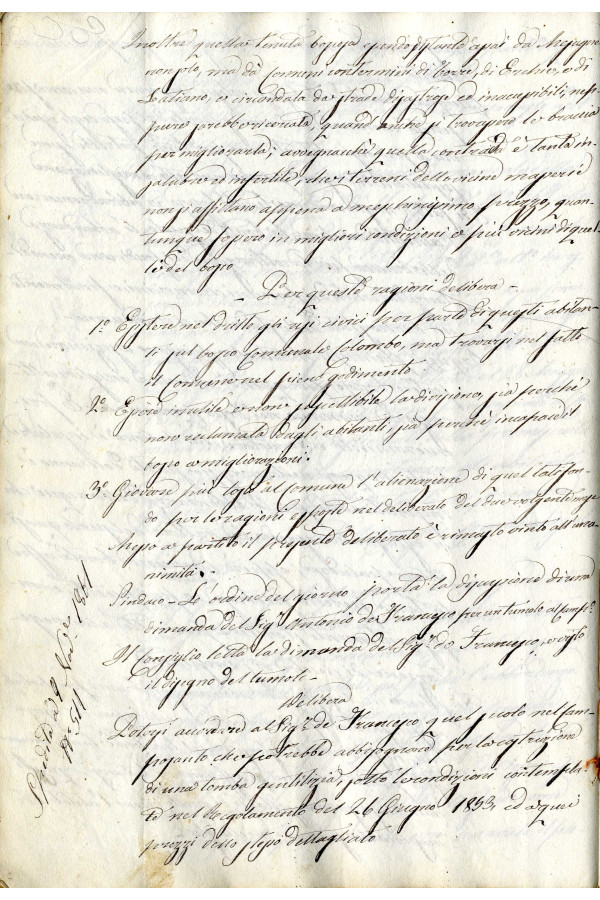 Inoltre questa tenuta boscosa essendo distante assai da Mesagne
non solo, ma dà Comuni contermini di Torre, di Erchie, e di
Latiano, e circondata da strade disastrose ed inaccessibili, nep-
pure sarebbe ricercata, quand'anche si trovassero le braccia
per migliorarla; avvegnacchè quella contrada è tanta in-
salubre ed infertile, che i terreni delle vicine masserie
non si affittano appena a meschinissimo prezzo, quan-
tunque fossero in migliori condizioni e più vicini di quel-
le del bosco
Per queste ragioni delibera -
1.° Esistere nel dritto gli usi civici per parte di questi abitan-
ti sul bosco Comunale Colombo, ma trovarsi nel fatto
il Comune nel pieno godimento.
2.° Essere inutile e non suscettibile la divisione, sia perché
non reclamata dagli abitanti, sia perché incapace il
bosco a migliorazioni.
3.° Giovare più tosto al Comune l'alienazione di quel latifon-
do per le ragioni esposte nel deliberato del due volgente mese
Messo a partito il presente deliberato è rimasto vinto all'una-
nimità.
Sindaco - L'ordine del giorno porta la discussione di una
dimanda del Sig.r Antonio de Francesco per un tumolo al Camps.to
Il Consiglio letta la dimanda del Sig.r de Francesco, e visto
il disegno del tumolo -
Delibera
Potersi accordare al Sig.r de Francesco quel suolo nel Cam-
posanto che potrebbe abbisognare per la costruzione
di una tomba gentilizia, sotto le condizioni contempla-
te nel Regolamento del 26 Giugno 1853, ed a quei
prezzi dello stesso dettagliato
Spedito a 9 Nov.e 1861
N.° 511